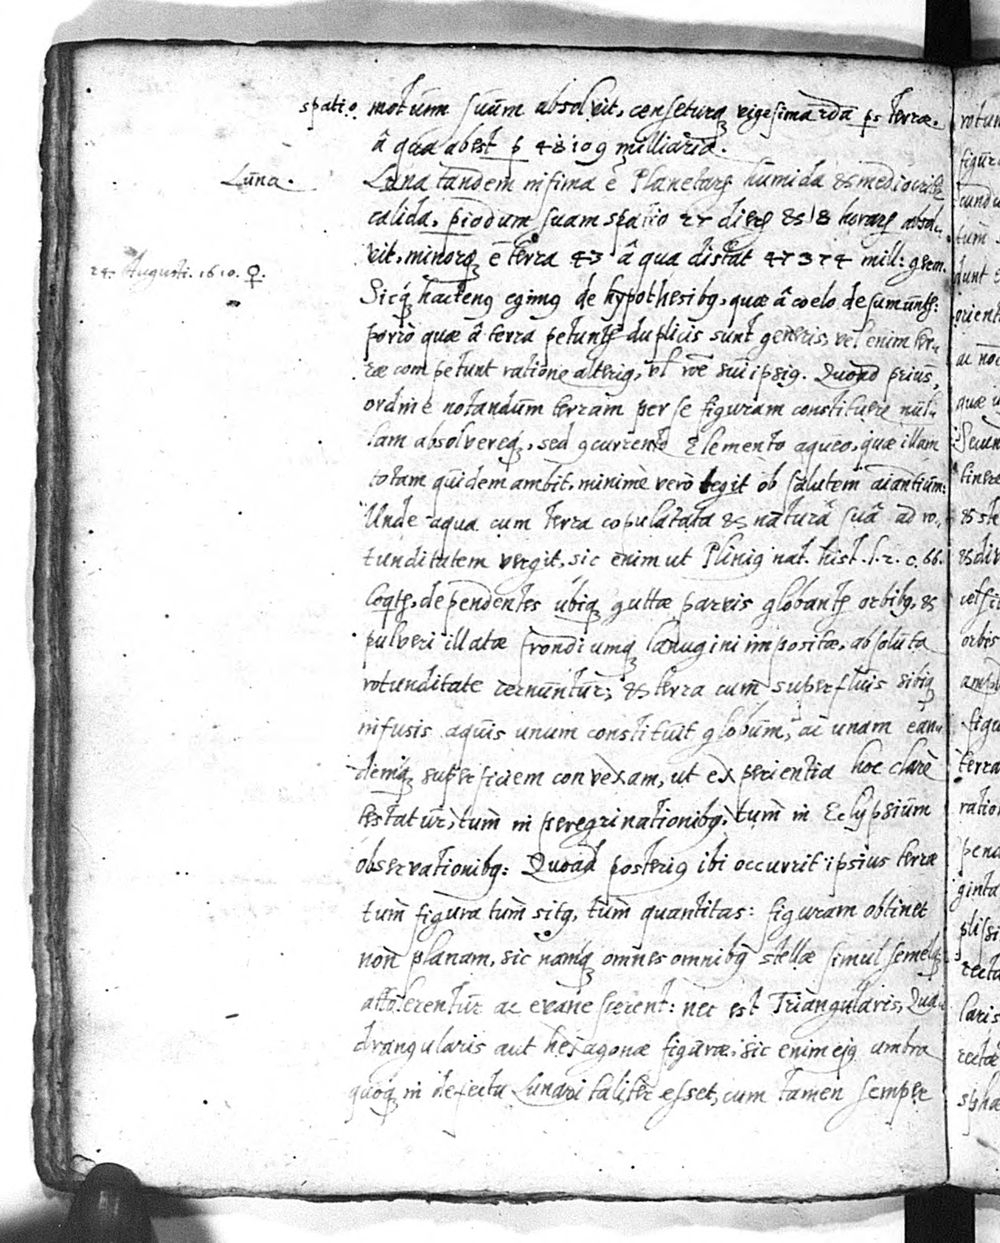 spatio motum suum absolvit, censeturq vigesima 2da ps terræ,
â qua abest p 48109 milliaria.
Luna. Luna tandem infima ē Planetarʒ humida & mediocrite
calida, piodum suam spatio 27 diebʒ & 8 horarʒ absol¬
vit, minorq ē terra 43 â qua distat 47374 mill: germ.
24. Augusti. 1610. ♀.
Sicq hacteng egimg de hypothesibg, quæ â coelo desumuntʒ:
porrò quæ â terra petuntʒ duplicis sunt generis, vel enim ter¬
ræ competunt ratione alterig, vl rōe sui ipsig. Quoad prius,
ordine notandum terram per se figuram constituere nul¬
lam absolvereq, sed gcurrente Elemento aqueo, quæ illam
totam quidem ambit, minimè verò tegit ob salutem aiantium:
Unde aqua cum terra copulatata & naturâ suâ ad ro¬
tunditatem vergit, sic enim ut Plinig nat. hist. l. 2. c. 66.
loqtʒ, dependentes ubiq guttæ parvis globantʒ orbibg, &
pulveri illatæ frondiumq lanugini impositæ, absoluta
rotunditate cernuntur; & terra cum superfluis sibiq
infusis aquis unum constituit globum, ac unam ean¬
demq superficiem convexam, ut experientia hoc clarè
testatur, tum in peregrinationibg, tum in Eclypsium
observationibg: Quoad posterig ibi occurrit ipsius terræ
tum figura tum sitg, tum quantitas: figuram obtinet
non planam, sic namq omnes omnibg stellæ simul semelq
afforerentur ac evanescerent: nec est Triangularis, Qua¬
drangularis aut hexagonæ figuræ, sic enim ejg umbra
quoq in defectu Lunari taliter esset, cum tamen semper